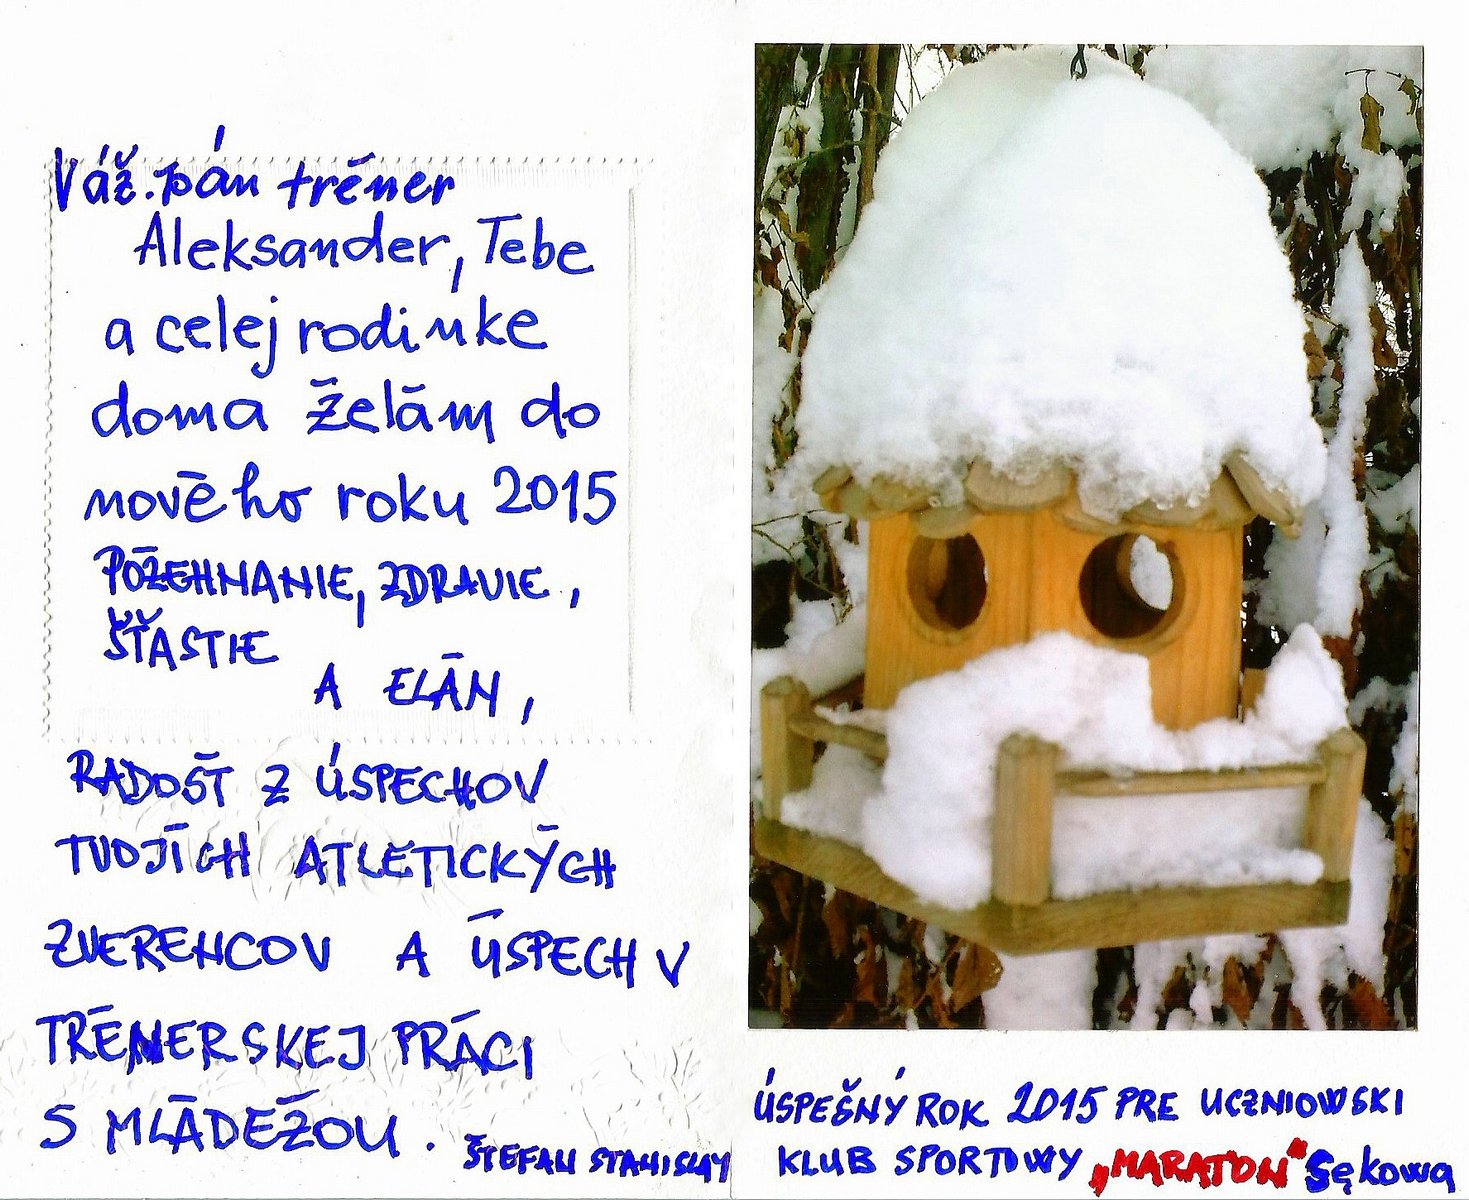 Váž. pán tréner
Aleksander, Tebe
a celej rodinke
doma želám do
nového roku 2015
POŽEHNANIE, ZDRAVIE,
ŠŤASTIE
A ELÁN,
RADOSŤ Z ÚSPECHOV
TVOJÍCH ATLETICKÝCH
ZVERENCOV A ÚSPECH V
TRÉNERSKEJ PRÁCI
S MLÁDEŽOU.
ŠTEFAN STANISLAV
ÚSPEŠNÝ ROK 2015 PRE UCZNIOWSKI
KLUB SPORTOWY „MARATON" Sękowa